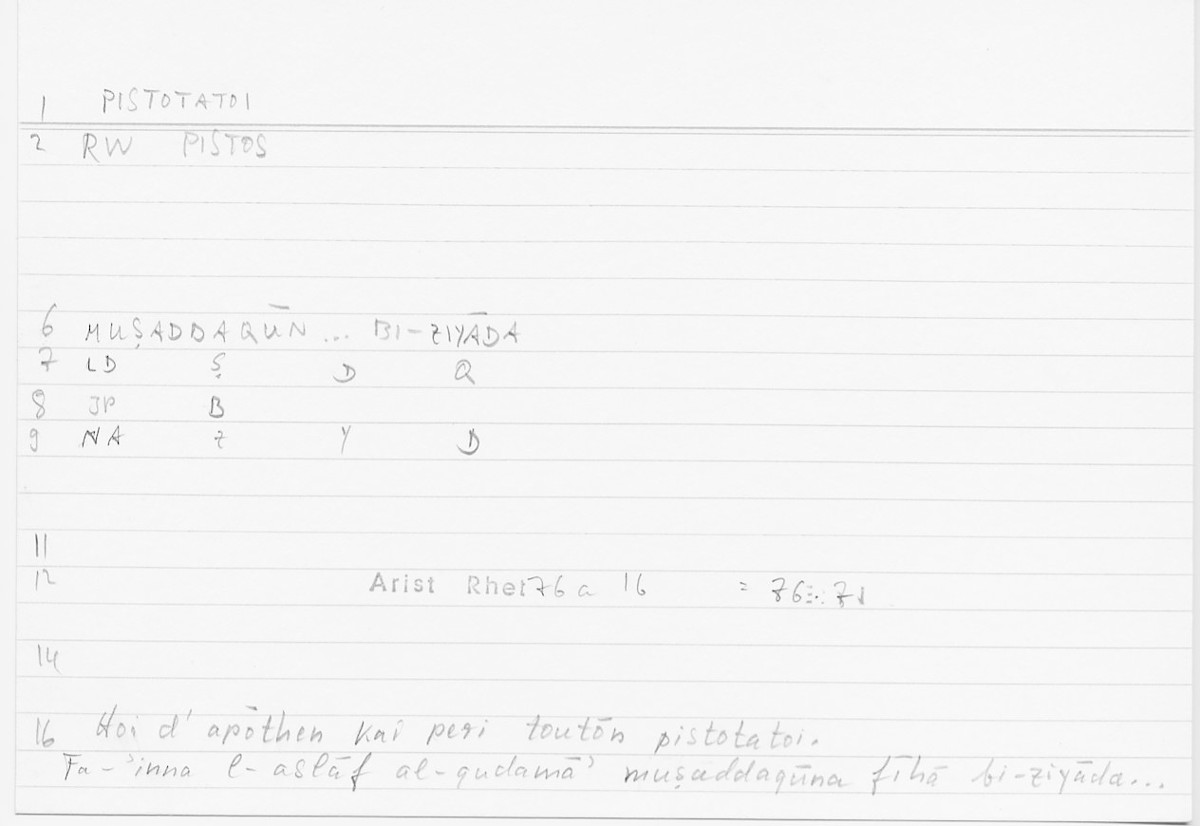 1 PISTOTATOI
2 RW PISTOS
6 MUṢADDAQŪN ... BI-ZIYĀDA
7 LD Ṣ D Q
8 JP B
9 NA Z Y D
11
12 Arist Rhet 76 a 16 = 76
14
16 Hoi d' apōthen kai peri toutōn pistotatoi.
Fa-'inna l-aslāf al-qudamā' muṣaddaqūna fīhā bi-ziyāda...